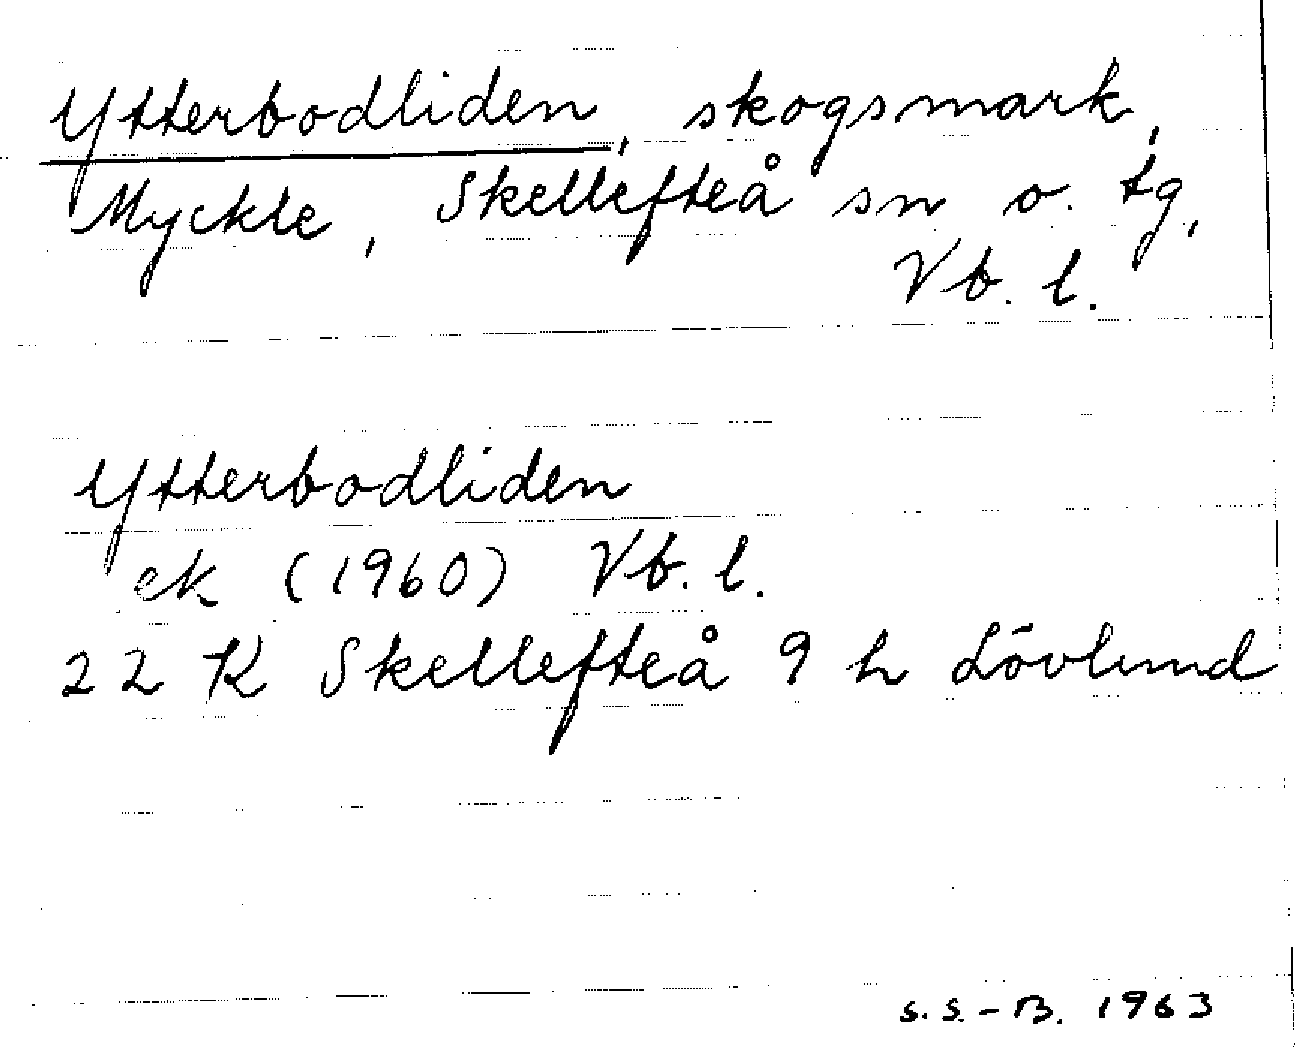 Ytterbodliden, skogsmark,
Myckle, Skellefteå sn o. tg,
Vb. l.
Ytterbodliden
ek (1960) Vb. l.
22 K Skellefteå 9 h Lövlund
S.S.-B. 1963